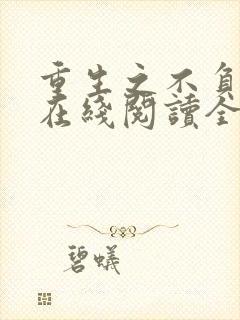 重生之不負
在綫閱讀全
碧蟻